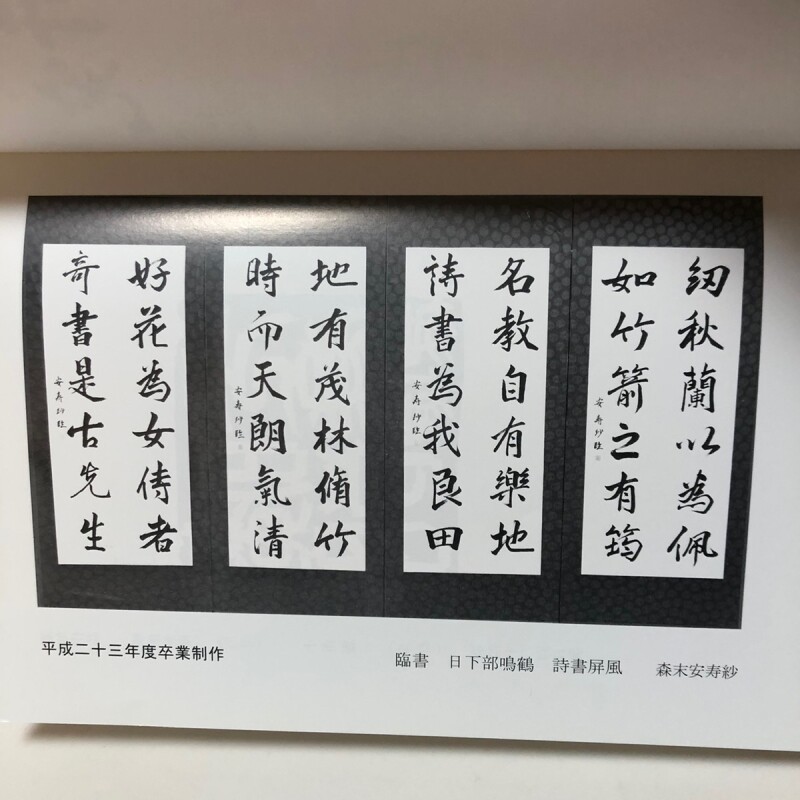 紉秋蘭以為佩
如竹箭之有筠
安寿紗臨
名教自有樂地
詩書為我良田
安寿紗臨
地有茂林脩竹
時而天朗氣清
安寿紗臨
好花為女侍者
奇書是古先生
安寿紗臨
平成二十三年度卒業制作
臨書　日下部鳴鶴　詩書屏風　森末安寿紗